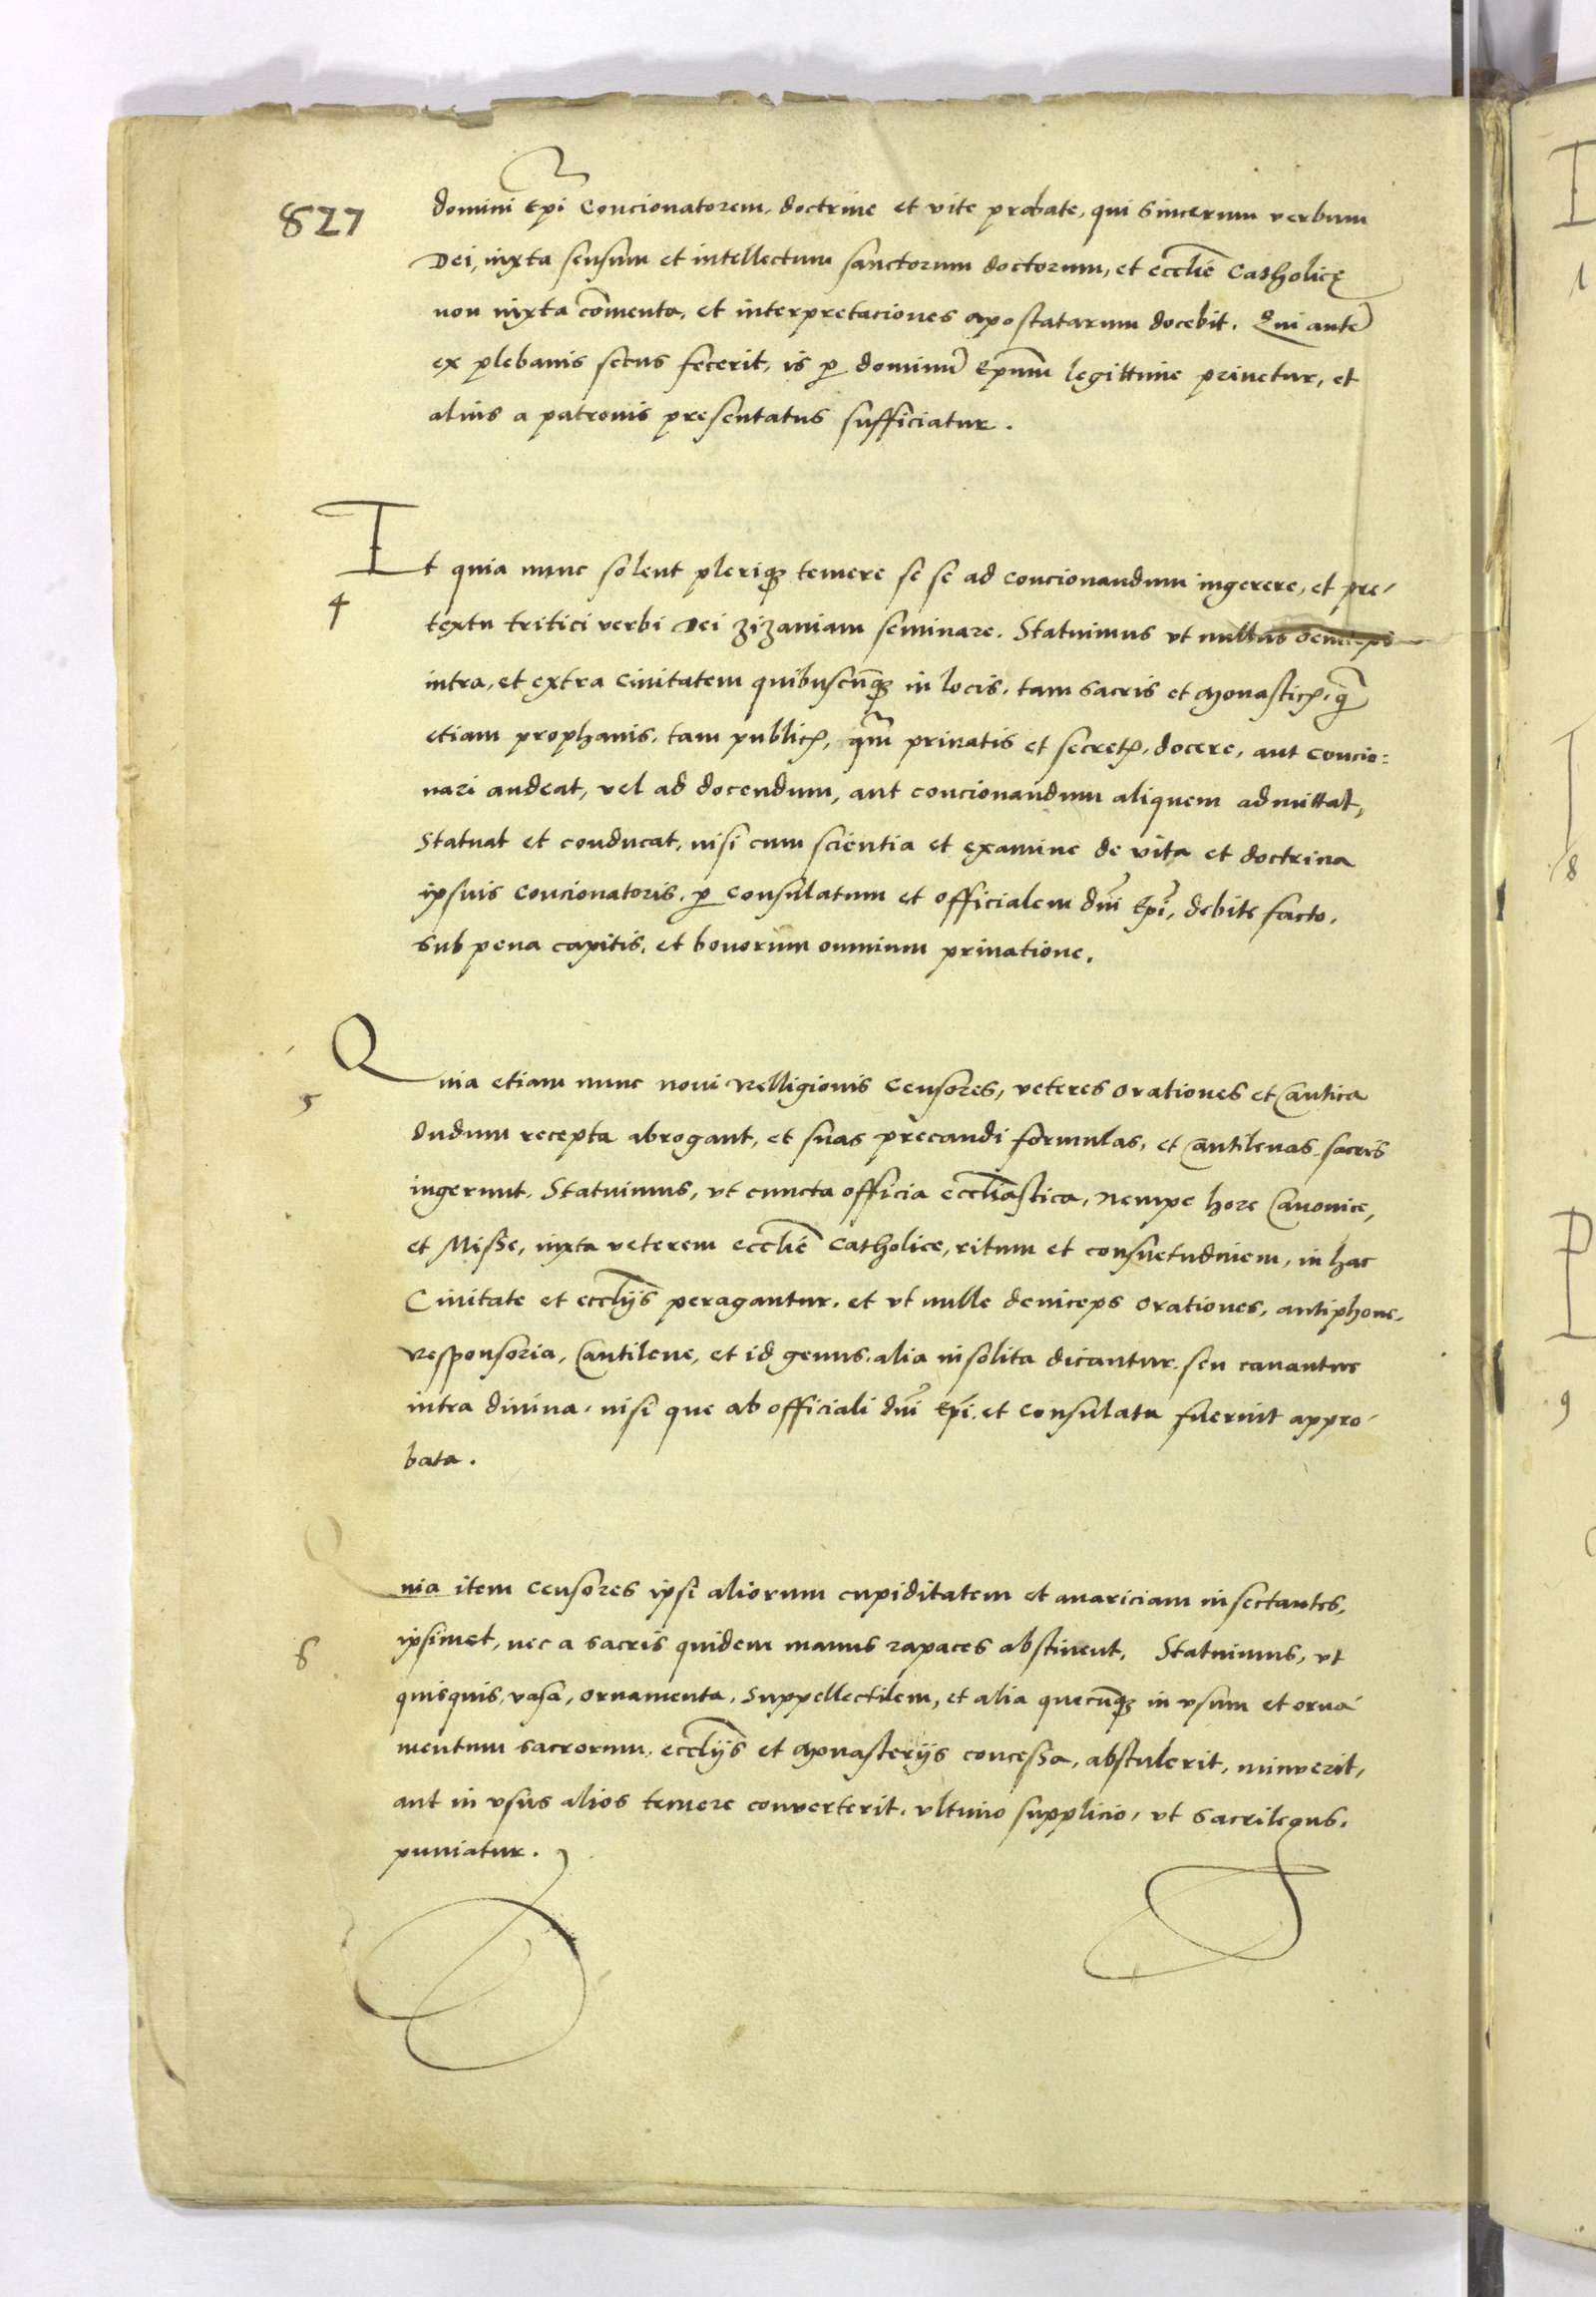 827
domini Epi Concionatorem, doctrine et vite probate, qui sincerum verbum
Dei, iuxta sensum et intellectum sanctorum doctorum, et ecclie Catholicę
non iuxta comenta, et interpretaciones apostatarum docebit. Qui aute
ex plebanis secus fecerit, is p dominu Epum legittime privetur, et
alius a patronis presentatus sufficiatur.
Et quia nunc solent pleriq temere se se ad concionandum ingerere, et pre-
4
textu tritici verbi Dei zizaniam seminare. Statuimus vt nullus
intra, et extra civitatem quibuscuq in locis, tam sacris et Monastic, q
etiam prophanis, tam public, qm privatis et secret, docere, aut concio=
nari audeat, vel ad docendum, aut concionandum aliquem admittat,
Statuat et conducat, nisi cum scientia et examine de vita et doctrina
ipsius Concionatoris, p Consulatum et officialem dni Epi, debite facto,
sub pena capitis, et bonorum omnium privatione.
Quia etiam nunc novi Relligionis Censores, veteres orationes et Cantica
5
dudum recepta abrogant, et suas precandi formulas, et Cantilenas sacris
ingerunt, Statuimus, vt cuncta officia eccliastica, nempe hore Canonice,
et Misse, iuxta veterem ecclie Catholice, ritum et consuetudinem, in hac
Civitate et eccliis peragantur, et vt nulle deinceps orationes, antiphone,
Responsoria, Cantilene, et id genus alia insolita dicantur seu canantur
intra divina, nisi que ab officiali dni Epi et Consulatu fuerint appro-
bata.
Quia item Censores ipsi aliorum cupiditatem et avariciam insectantes,
6
ipsimet, nec a sacris quidem manus rapaces abstinent, Statuimus, vt
quisquis, vasa, ornamenta, suppellectilem, et alia quecuq in vsum et orna-
mentum sacrorum, eccliis et Monasterijs concessa, abstulerit, minuerit,
aut in vsus alios temere converterit, vltimo supplicio, vt sacrilegus,
puniatur.